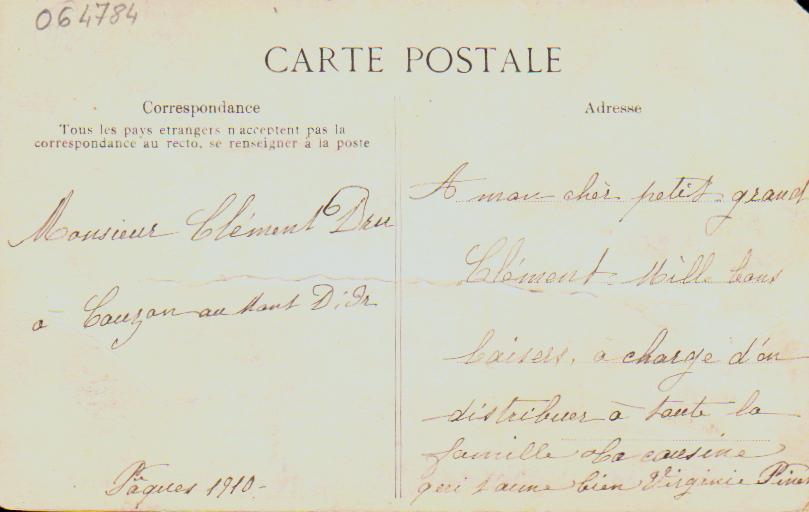 064784
CARTE POSTALE
Correspondance
Tous les pays etrangers n'acceptent pas la
correspondance au recto, se renseigner à la poste
Monsieur Clément Dru
a Couzon au Mont D'Or
Pâques 1910-
Adresse
A mon chèr petit grand
Clément. Mille bons
baisers, a charge d'en
distribuer à toute la
famille La cousine
qui t'aime bien Virginie